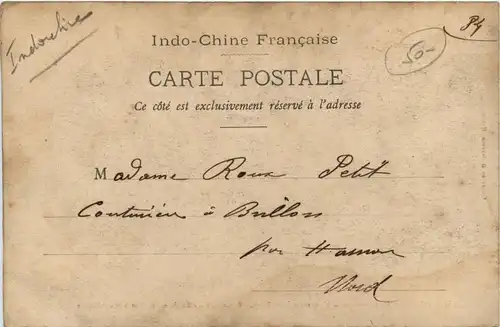 Indochine
50-
Indo-Chine Française
CARTE POSTALE
Ce côté est exclusivement réservé à l'adresse
Madame Roux Petit
Couturière à Brillon
par
Nord